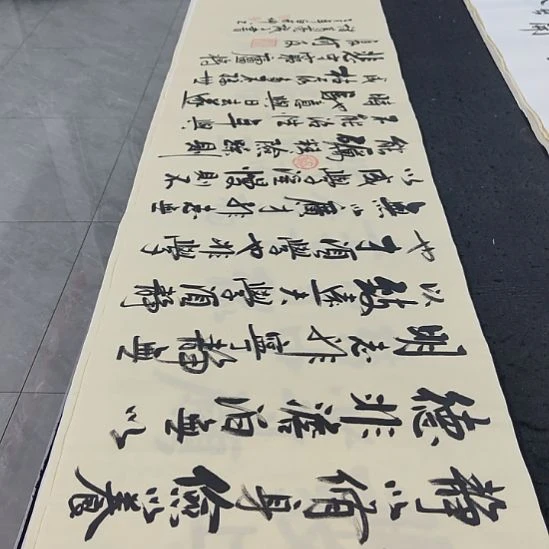 靜以脩身儉以養
德非澹泊無以
明志非寧靜無
以致遠夫學須靜
也才須學也非學
無以廣才非志無
以成學淫慢則不
能勵精險躁則
不能治性年與
時馳意與日去遂
成枯落多不接世
悲守窮廬將
復何及